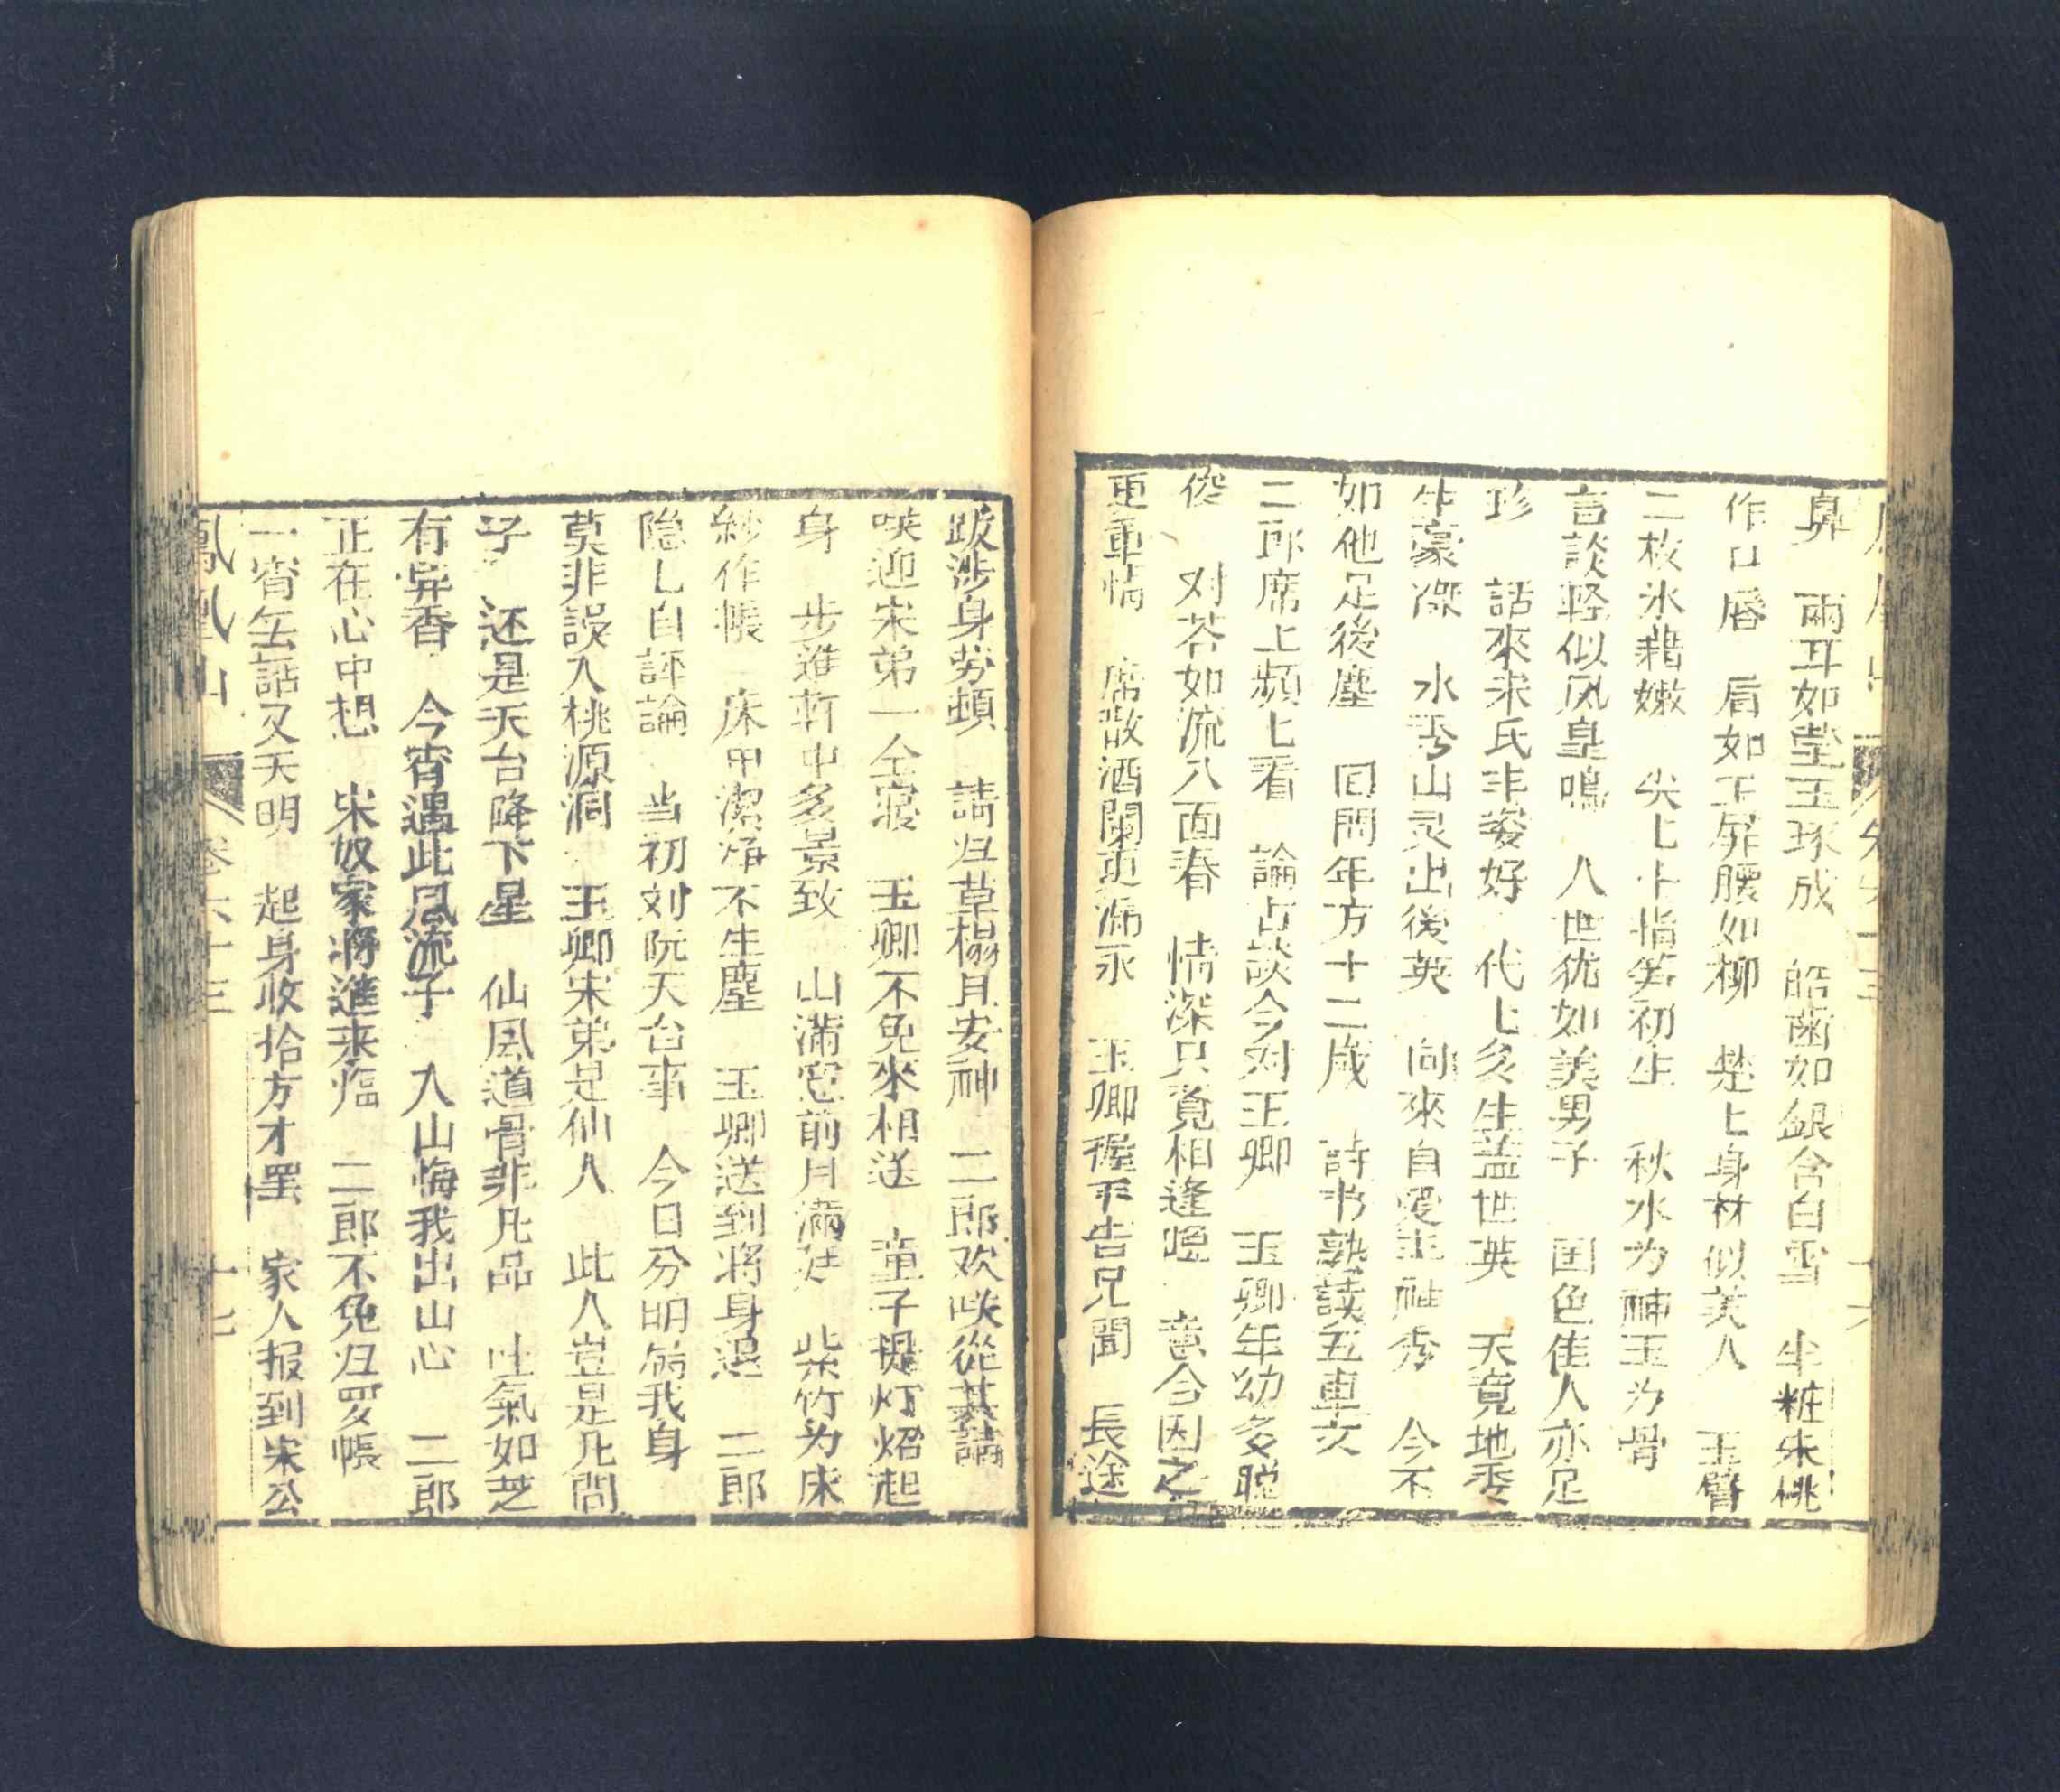 鼻 兩耳如瑩玉琢成 皓齒如銀含白雪 半粧朱桃
作口唇 肩如玉屏腰如柳 楚七身材似美人 玉臂
二枚氷藕嫩 尖七十指笋初生 秋水为神玉为骨
言談輕似凤皇鳴 人世犹如美男子 囯色佳人亦足
珍 話來宋氏非姿好 代七多生盖世英 天竟地秀
生豪傑 水秀山灵出後英 向來自愛生祉秀 今不
如他足後塵 回問年方十二歲 詩书熟讀五車文
二郎席上頻七看 論古談今对玉卿 玉卿年幼多聪
俊 对荅如流八面春 情深只覓相逢晚 意合因之
更重情 席散酒闌更漏永 玉卿禋下告兄聞 長途
跋涉身劳頓 請归草榻且安神 二郎欢喚從其請
喚迎宋弟一仝寝 玉卿不免來相送 童子提灯炤起
身 步進軒中多景致 山滿窓前月滿廷 柴竹为床
紗作帳 床甲潔淨不生塵 玉卿送到将身退 二郎
隐乚自評論 当初刘阮天台事 今日分明尚我身
莫非誤入桃源洞 玉卿宋弟是仙人 此人豈是凡問
子 还是天台降下星 仙凮道骨非凡品 吐氣如芝
有异香 今宵遇此凮流子 入山悔我出山心 二郎
正在心中想 宋奴家將進来臨 二郎不免归罗帳
一宵缶話又天明 起身收拾方才罢 家人报到宋公
鳳凰山 卷六十三 十七